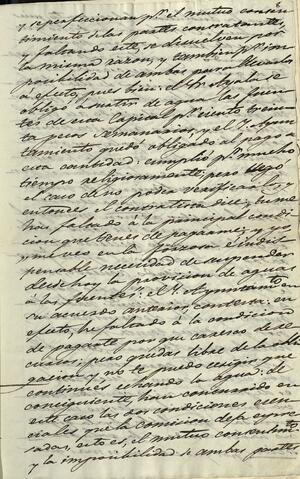 y se perfeccionan pr. el mutuo consen-
timiento de las partes contratantes,
y faltando este, se disuelven por
la misma razon, y tambien pr. im-
posibilidad de ambas para llevarlo
á efecto, pues bien: el Sr. Oyala se
obligó á surtir de agua las fuen-
tes de esta Capital pr. ciento trein-
ta pesos semanarios, y el Yltre. Ayun-
tamiento quedó obligado al pago de
esa cantidad: cumplió pr. mucho
tiempo religiosamente; pero llegó
el caso de no poder verificarlo y
entonces el contratista dice, tu me
has faltado á la principal condi-
cion que tenes de pagarme, y yo,
me veo en la forzosa é indis-
pensable necesidad de suspender
desde hoy la provicion de aguas
á las fuentes: el Yl. Ayuntamto. en
su acuerdo anterior, contesta: en
efecto, he faltado á la condicion
de pagarte por que carezco de re-
cursos; pero quedas libre de la obli-
gacion, y no te puedo exigir que
continues echando la agua: de
consiguiente, han concurrido en
este caso las dos condiciones esen-
ciales que la comision deja expre-
sadas, esto es, el mutuo consentimto.
y la imposibilidad de ambas partes